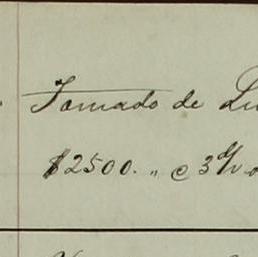 Tomado de Lu
$2500. „ @ 3 d/v